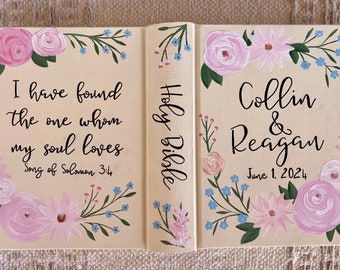 I have found
the one whom
my soul loves
Song of Solomon 3:4
Holy Bible
Collin
&
Reagan
June 1, 2024